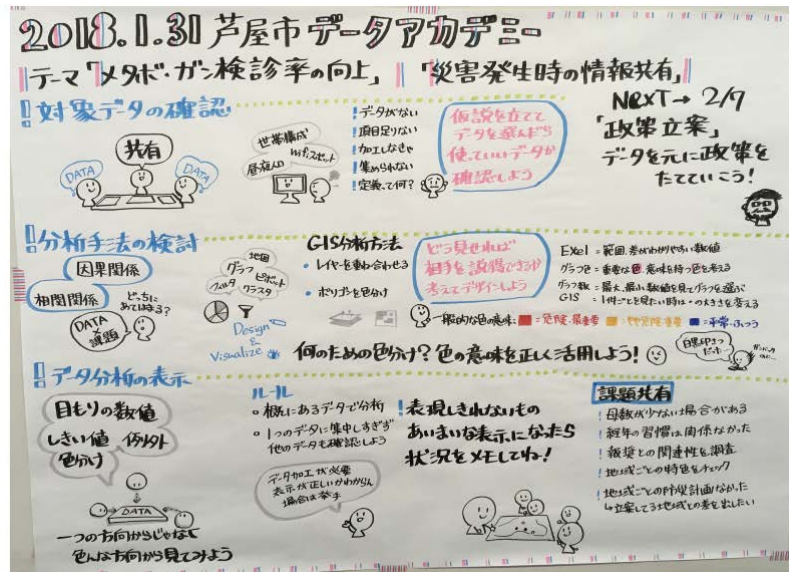 2018.1.31 芦屋市データアカデミー
テーマ「メタボ・ガン検診率の向上」「災害発生時の情報共有」
NexT→ 2/7
「政策立案」
データを元に政策を
たてていこう!
!対象データの確認
共有
DATA
DATA
世帯構成
wifiスポット
昼夜人口
!データがない
!項目足りない
!加工しなきゃ
!集められない
!定義って何?
仮説を立てて
データを選んだら
使っていいデータか
確認しよう
!分析手法の検討
因果関係
相関関係
どっちに
あてはまる?
DATA
×
課題
地図
グラフ ピボット
フィルタ クラスタ
Design
&
Visualize
GIS分析方法
・レイヤーを重ね合わせる
・ポリゴンを色分け
どう見せれば
相手を説得できるか
考えてデザインしよう
Excel = 範囲、差がわかりやすい数値
グラフ色 = 重要な色、意味を持つ色を考える
グラフ数 = 最大、最小、数値を見てグラフを選ぶ
GIS = 1件ごとを見たい時は・の大きさを変える
一般的な色の意味:
=危険・最重要
=平常・ふつう
何のための色分け?色の意味を正しく活用しよう!
!データ分析の表示
目もりの数値
しきい値 例外
色分け
DATA
一つの方向からじゃなく
色んな方向から見てみよう
ルール
○既にあるデータで分析
○1つのデータに集中しすぎず
他のデータも確認しよう
データ加工が必要
表示が正しいかわからん
場合は挙手
!表現しきれないもの
あいまいな表示になったら
状況をメモしてね!
課題共有
!母数が少ない場合がある
!経年の習慣は関係なかった
!報奨との関連性を調査
!地域ごとの特色をチェック
!地域ごとの防災計画なかった
↳立案してる地域との差を出したい